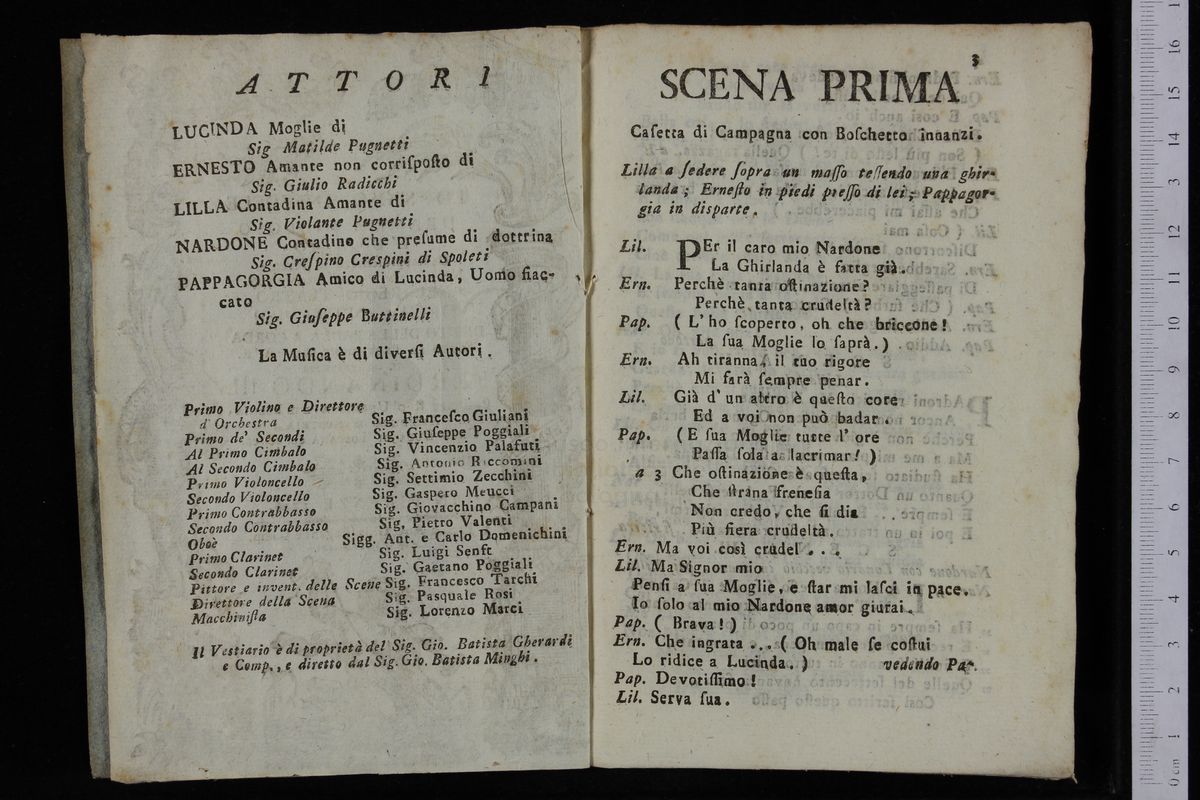 ATTORI
LUCINDA Moglie di
Sig Matilde Pugnetti
ERNESTO Amante non corriſpoſto di
Sig. Giulio Radicchi
LILLA Contadina Amante di
Sig. Violante Pugnetti
NARDONE Contadino che preſume di dottrina
Sig. Creſpino Crespini di Spoleti
PAPPAGORGIA Amico di Lucinda, Uomo fiac-
cato
Sig. Giuſeppe Buttinelli
La Muſica è di diverſi Autori.
Primo Violino e Direttore
d'Orchestra Sig. Franceſco Giuliani
Primo de' Secondi Sig. Giuſeppe Poggiali
Al Primo Cimbalo Sig. Vincenzio Palafuti
Al Secondo Cimbalo Sig. Antonio Riccomini
Primo Violoncello Sig. Settimio Zecchini
Secondo Violoncello Sig. Gaspero Meucci
Primo Contrabbasso Sig. Giovacchino Campani
Secondo Contrabbasso Sig. Pietro Valenti
Oboè Sigg. Ant. e Carlo Domenichini
Primo Clarinet Sig. Luigi Senft
Secondo Clarinet Sig. Gaetano Poggiali
Pittore e invent. delle Scene Sig. Francesco Tarchi
Direttore della Scena Sig. Pasquale Rosi
Macchiniſta Sig. Lorenzo Marci
Il Vestiario è di proprietà del Sig. Gio. Batista Gherardi
e Comp., e diretto dal Sig. Gio. Batista Minghi.
3
SCENA PRIMA
Caſetta di Campagna con Boſchetto innanzi.
Lilla a ſedere ſopra un maſſo teſſendo una ghir-
landa; Erneſto in piedi preſſo di lei; Pappagor-
gia in disparte.
Lil. PEr il caro mio Nardone
La Ghirlanda è fatta già.
Ern. Perchè tanta oſtinazione?
Perchè tanta crudeltà?
Pap. (L'ho ſcoperto, oh che briccone!
La ſua Moglie lo ſaprà.)
Ern. Ah tiranna, il tuo rigore
Mi farà ſempre penar.
Lil. Già d'un altro è queſto core
Ed a voi non può badar.
Pap. (E ſua Moglie tutte l'ore
Paſſa ſola a lacrimar!)
a 3 Che oſtinazione è queſta,
Che ſtrana freneſia
Non credo, che ſi dia
Più fiera crudeltà.
Ern. Ma voi così crudel . . .
Lil. Ma Signor mio
Penſi a ſua Moglie, e ſtar mi laſci in pace.
Io ſolo al mio Nardone amor giurai.
Pap. (Brava!)
Ern. Che ingrata ... (Oh male ſe coſtui
Lo ridice a Lucinda.) vedendo Pap.
Pap. Devotiſſimo!
Lil. Serva ſua.
0 cm 1 2 3 4 5 6 7 8 9 10 11 12 13 14 15 16